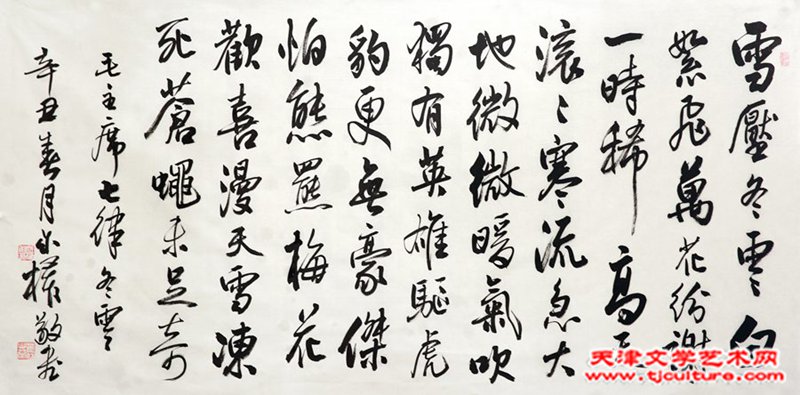 雪壓冬雲白
絮飛萬花紛謝
一時稀高天
滚〻寒流急大
地微微暖氣吹
獨有英雄驅虎
豹更無豪傑
怕熊羆梅花
歡喜漫天雪凍
死蒼蠅未足奇
毛主席七律冬雲
辛丑春月敬書
天津文学艺术网
www.tjculture.com